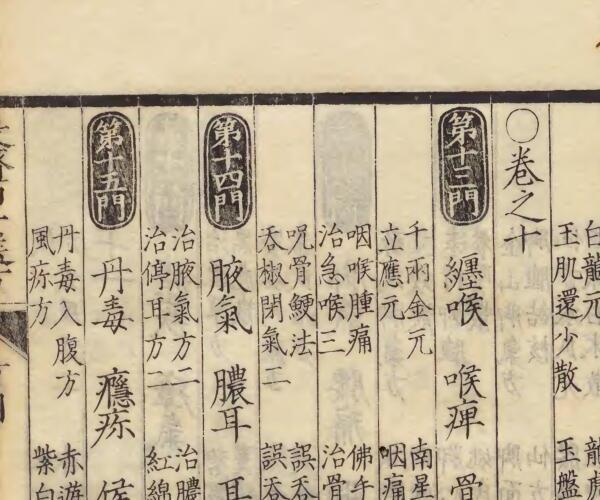 白龍元
玉肌還少散 玉盤
〇卷之十
第十三門 纏喉 喉痺 骨
千兩金元 南星
立應元 咽痛
咽喉腫痛 佛手
治急喉三 治骨
呪骨鯁法 誤吞
吞椒閉氣二 誤吞
第十四門 腋氣 膿耳 耳
治腋氣方二 治膿
治停耳方二 紅綿
第十五門 丹毒 癮疹 候
丹毒入腹方 赤遊
風疹方 紫白